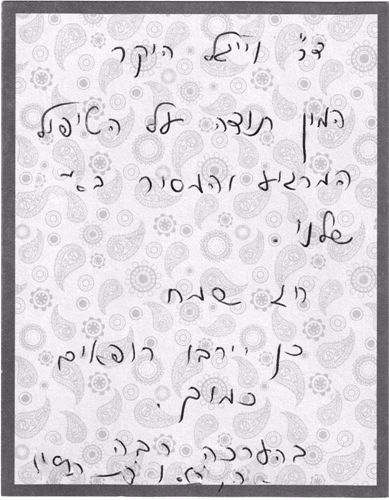 דר' וייגל היקר
המון תודה על הטיפול
המרגיע והמסור ב
שלנו.
חג שמח
כן ירבו רופאים
כמוך.
בהערכה רבה